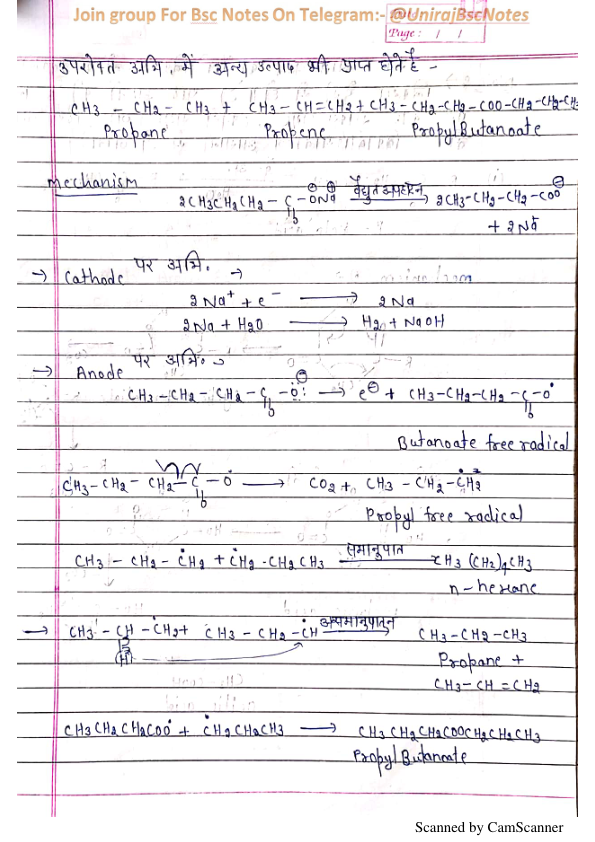 Join group For Bsc Notes On Telegram:- @UnirajBscNotes
Page: / /
उपरोक्त अभि. में अन्य उत्पाद भी प्राप्त होते है -
CH3 - CH2 - CH3 + CH3 - CH=CH2 + CH3 - CH2-CH2 - COO-CH2-CH2-CH3
Propane Propene PropylButanoate
Mechanism
2CH3CH2CH2 - C - ONa वैद्युत अपघटन 2CH3-CH2-CH2-COO⊖
O
+ 2Na
→ Cathode पर अभि. →
2Na+ + e- → 2Na
2Na + H2O → H2 + NaOH
→ Anode पर अभि. →
CH3-CH2-CH2-C-O:⊖ → e⊖ + CH3-CH2-CH2-C-O•
O O
Butanoate free radical
CH3-CH2-CH2-C-O• → CO2 + CH3-CH2-CH2
O
Propyl free radical
CH3-CH2-CH2 + CH2-CH2CH3 समानुपात CH3(CH2)4CH3
n-hexane
→ CH3-CH-CH2 + CH3-CH2-CH असमानुपातन CH3-CH2-CH3
H Propane +
CH3-CH=CH2
CH3CH2CH2COO + CH2CH2CH3 → CH3CH2CH2COOCH2CH2CH3
PropylButanoate
Scanned by CamScanner